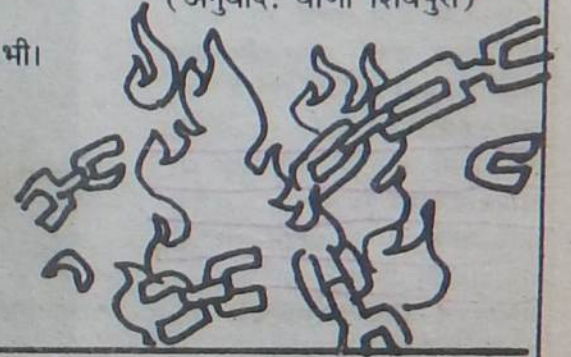 (अनुवाद: वीणा शिवपुरी)
भी।